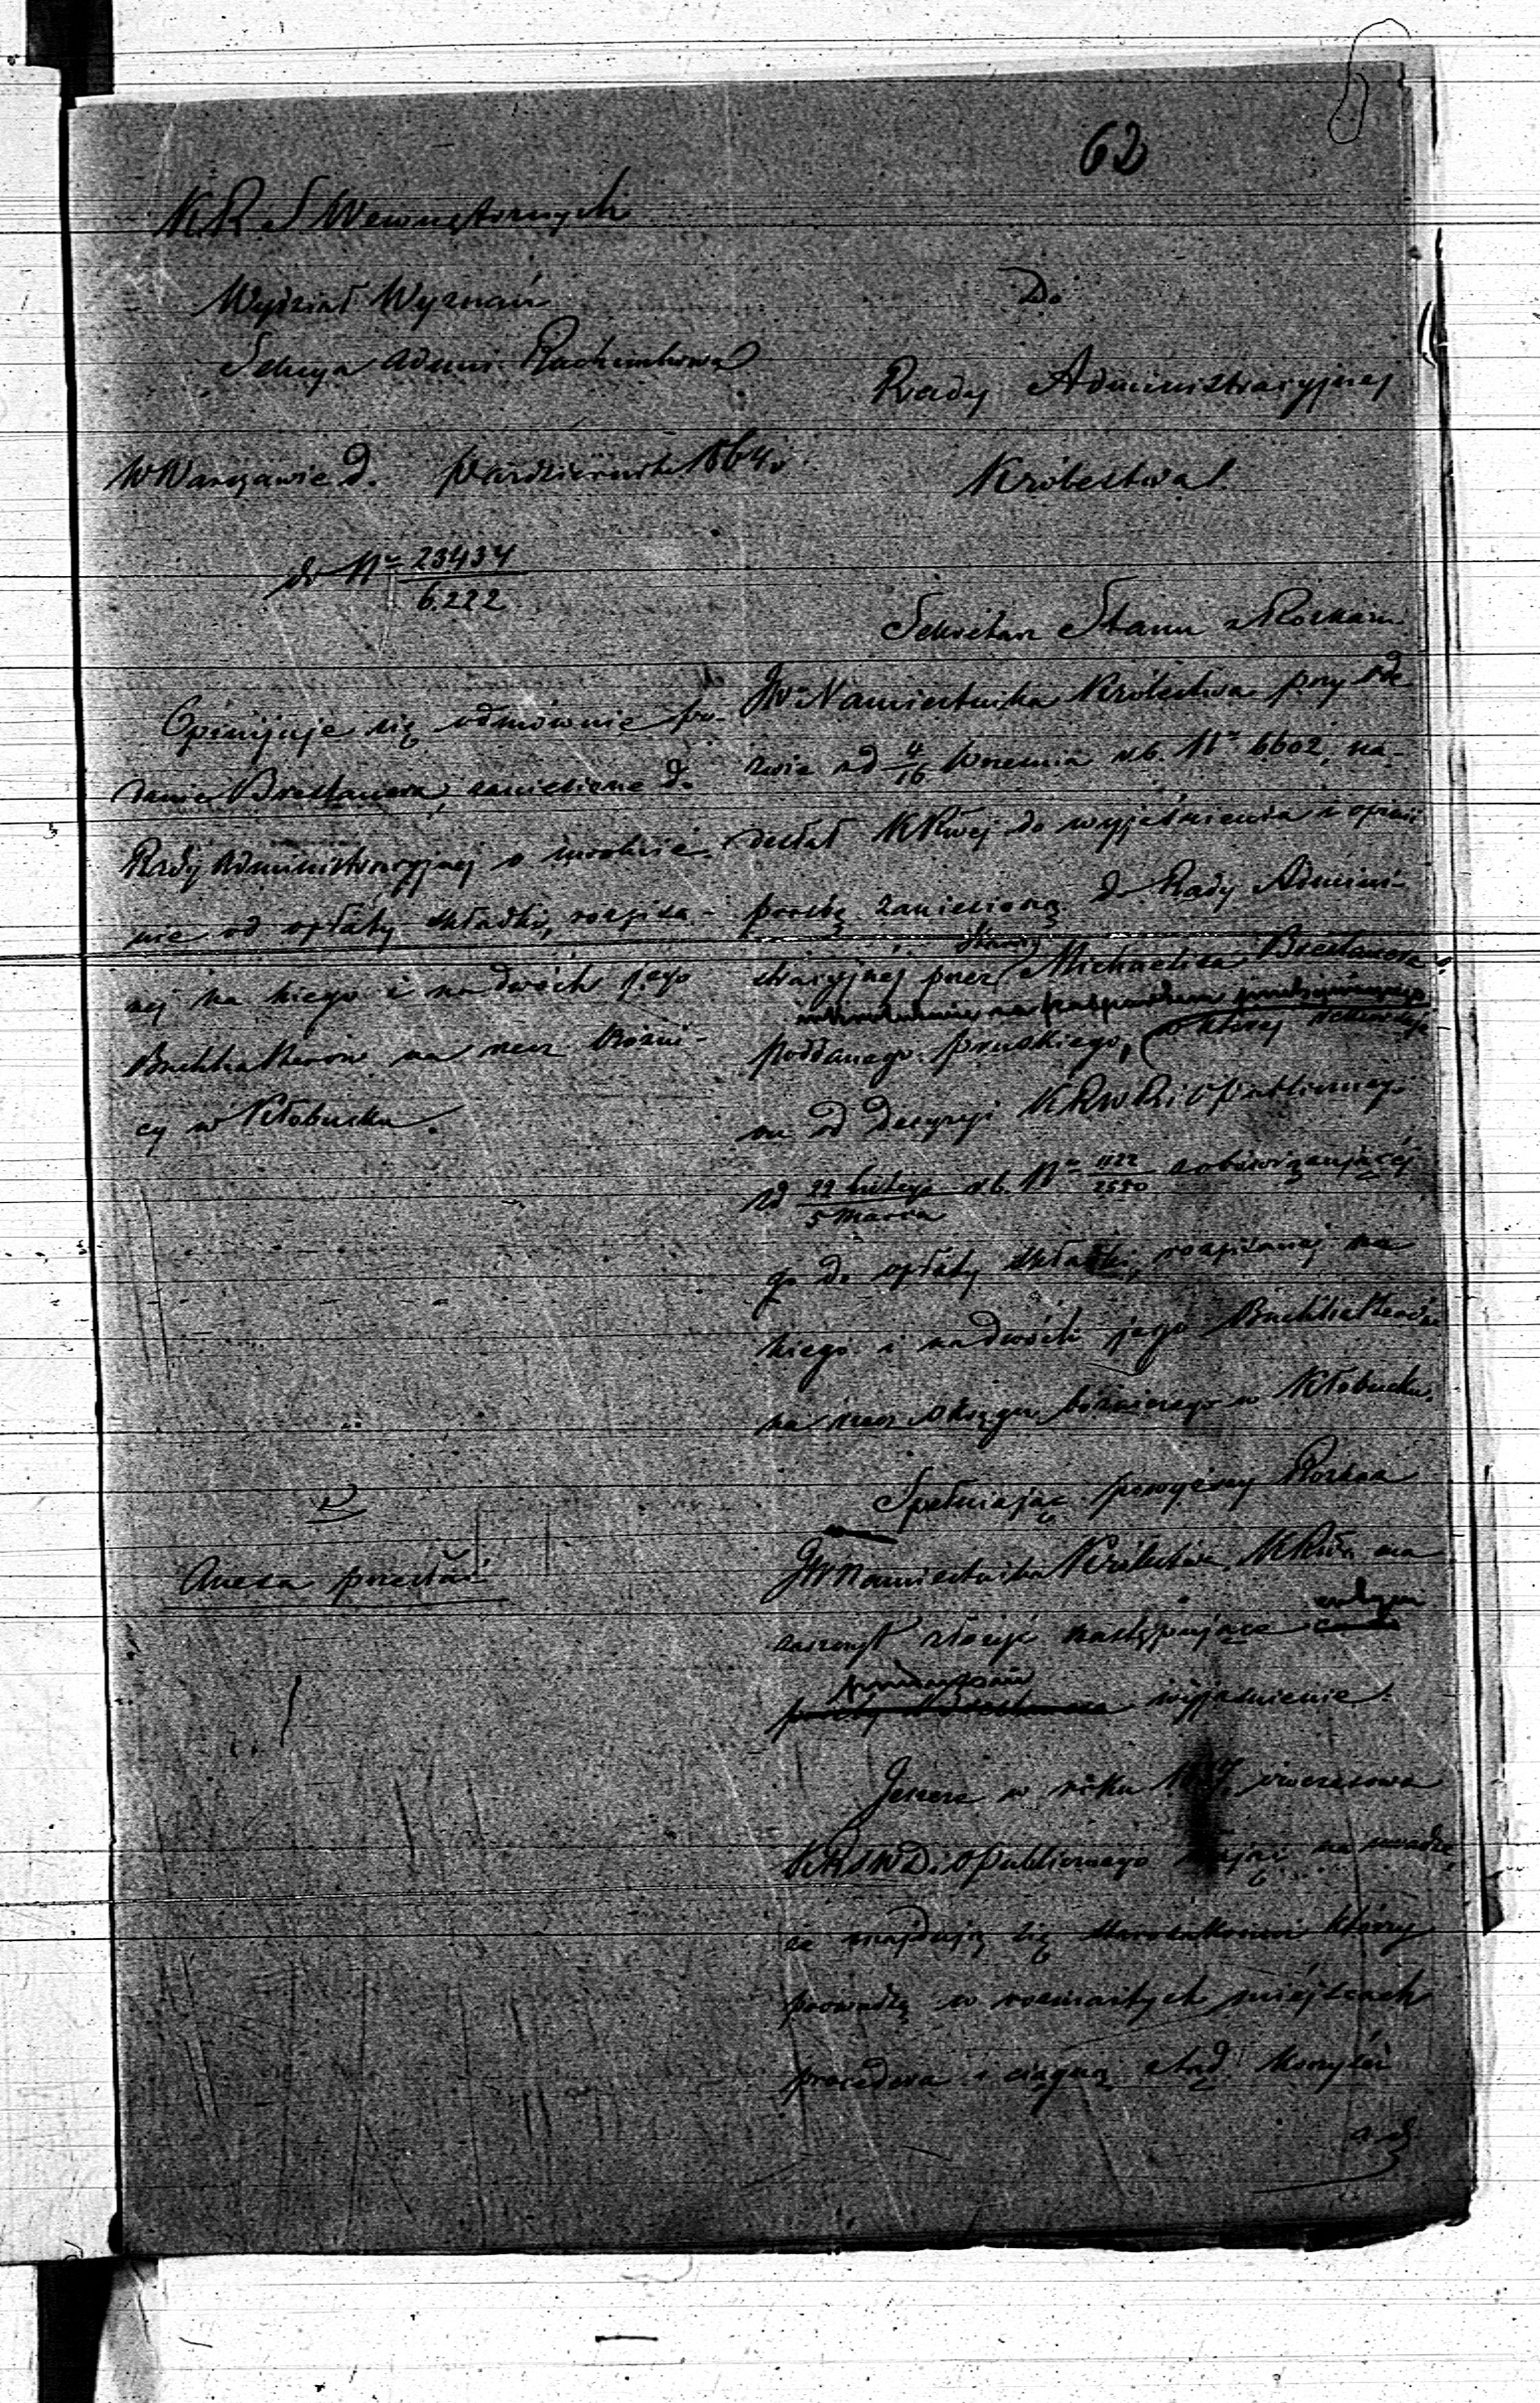 62
K.R.S Wewnętrznych
Wydział Wyznań
Sekcya Admi. Rachunkowa
W Warszawie d. Października 1864 r.
do Nr 23434
6.222
Opinijuje się odmównie po-
danie Breslauera, zaniesione do
Rady Administracyjnej o uwolnie-
nie od opłaty składki, rozpisa-
nej na niego i na dwóch jego
Buchhalterów na rzecz Bóżni-
cy w Kłobucku.
Anexa przesłać
Do
Rady Administracyjnej
Królestwa
Sekretarz Stanu z Rozkazu
JW Namiestnika Królestwa przy ode-
zwie z d 4/16 Września r.b. Nr 6602, na-
desłał KRwej do wyjaśnienia i opinii
prośbę zaniesioną do Rady Admini-
stracyjnej przez Michaelisa Breslauera
poddanego pruskiego, w której
on od decyzyi KRW Di O Publicznego
z d 22 Lutego r.b. Nr 1122 zobowiązującej
5 Marca 2580
go do opłaty składki, rozpisanej na
niego i na dwóch jego Buchhalterów
na rzecz Okręgu bóżniczego w Kłobucku.
Spełniając powyższy Rozkaz
JW Namiestnika Królestwa, KRw. ma
zaszczyt złożyć następujące
wyjaśnienie:
Jeszcze w roku ówczesowa
KRSWDiOPublicznego na uwadze
że znajdują się Starozakonni którzy
prowadzą w rozmaitych miejscach
procedera i ciągną ztąd korzyści